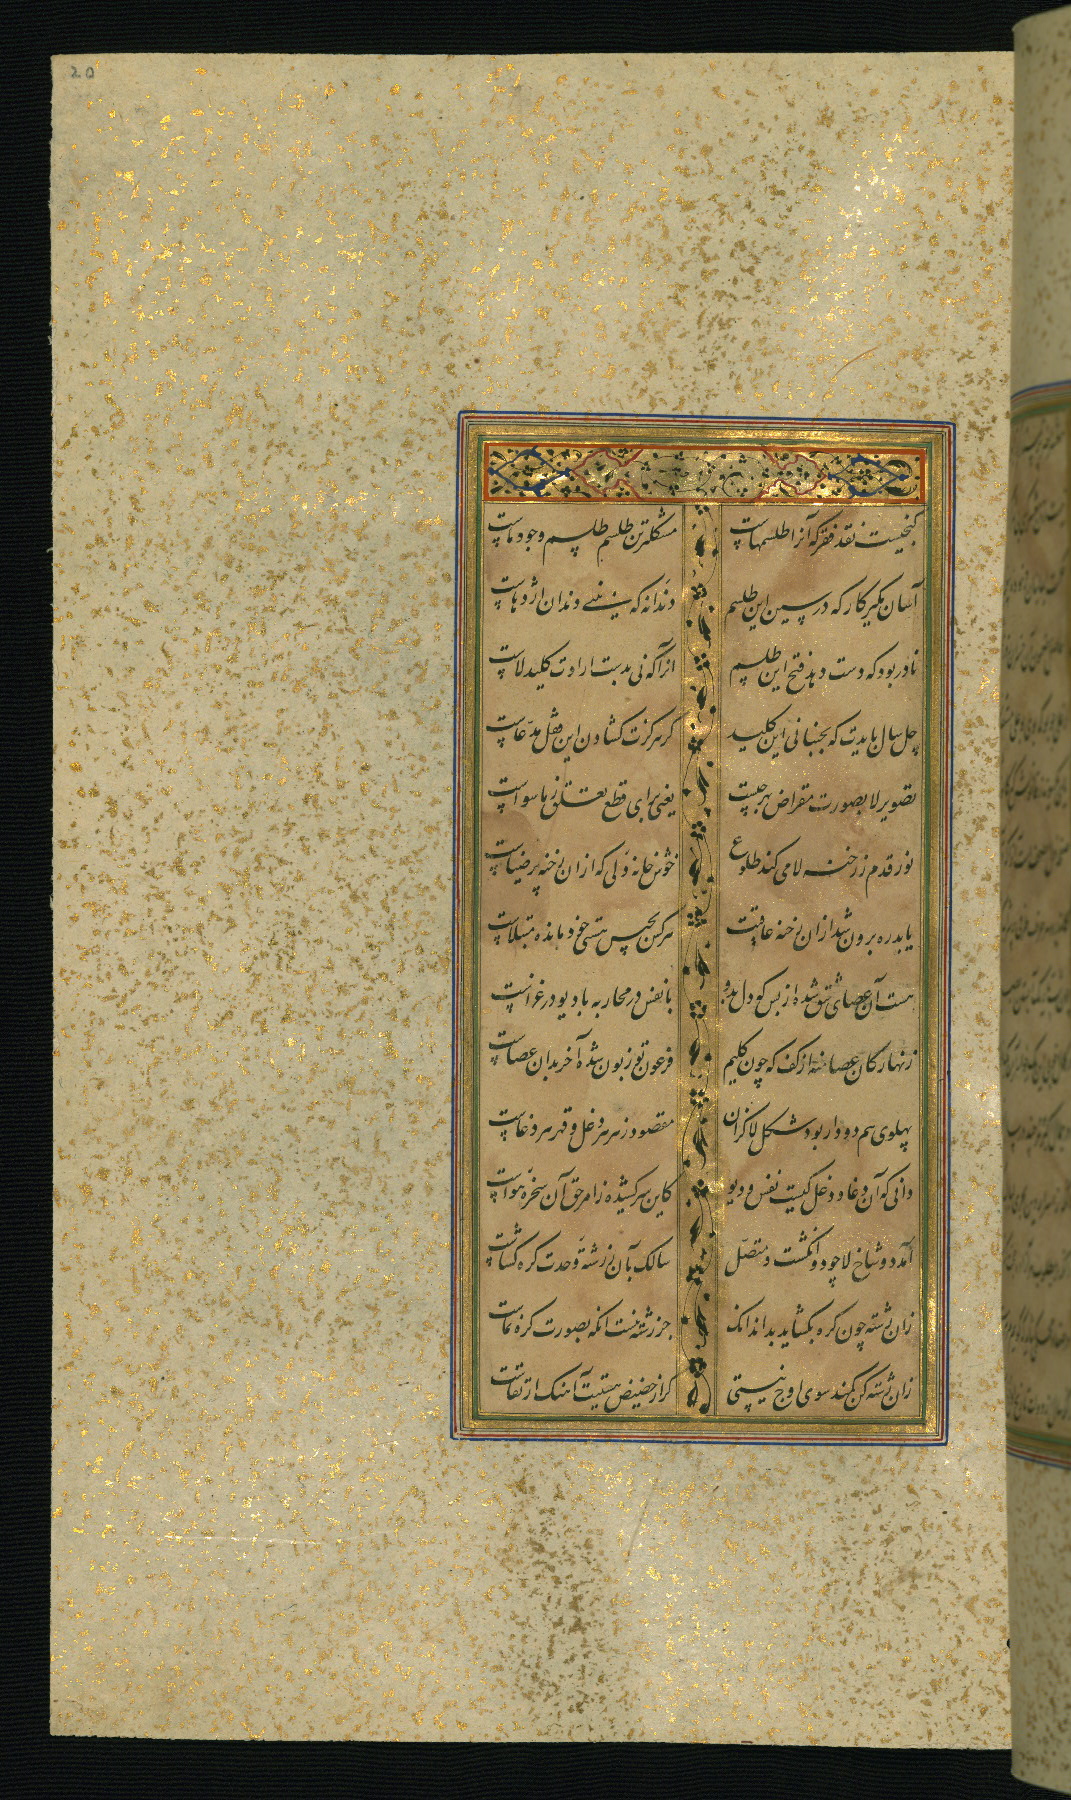 20
گنجیست نقد فقر که آنرا طلسمهاست مشکلترین طلسم طلسم وجود ماست
آسان مگیر کار که در سین این طلسم دندانه که بینی دندان اژدهاست
نادر بود که دست دهد فتح این طلسم آنرا که نی بدست ارادت کلید لاست
چل سال بایدت که بجنبانی این کلید گر هرگزت گشادن این قفل مدعاست
تصویر لا بصورت مقراض بهر چیست یعنی برای قطع تعلق ز ماسواست
نور قدم ز رخنه لا می کند طلوع خوش خانه دلی که ازان رخنه پر ضیاست
یابد ره برون شد ازان رخنه عاقبت هر کس بحبس هستی خود مانده مبتلاست
هست آن عصای شق شده از بس که دل بدو با نفس در محاربه با دیو در غزاست
زنهار کان عصا منه از کف که چون کلیم فرعون تو زبون شده آخر بدان عصاست
پهلوی هم دو دار بود شکل لا کزان مقصود زهر هر دغل و قهر هر دغاست
دانی که آن دغا و دغل کیست نفس و دیو کاین سر کشیده ز امر حق آن سخره هواست
آمد دو شاخ لا چو دو انگشت متصل سالک بآن ز رشته وحدت گره گشاست
زان رشته چون گره بگشاید بداند آنک جز رشته نیست آنکه بصورت گره نماست
زان رشته کن کمند سوی اوج نیستی گر از حضیض هستیت آهنگ ارتقاست